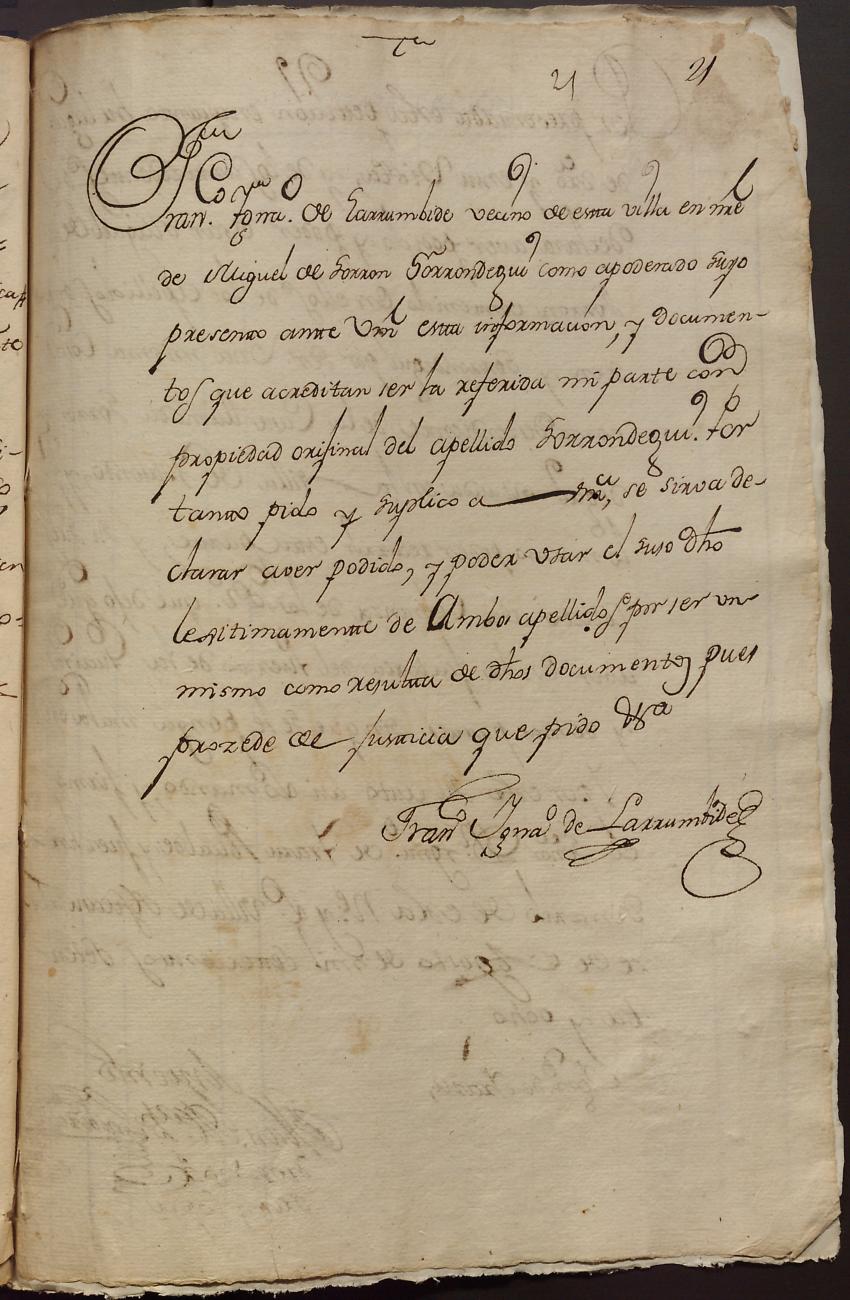 21 21
Fran.co Ygna.o de Larrumbide vecino de esta villa en nre
de Miguel de Gorron Gorrondegui como apoderado suyo
presento ante Vm esta informacion, y documen-
tos que acreditan ser la referida mi parte con
propiedad orijinal del apellido Gorrondegui. Por
tanto pido y suplico a Vm, se sirva de-
clarar aver podido, y poder Vsar el suso dho
lexitimamente de Ambos apellidos por ser un
mismo como resulta de dhos documentos pues
prozede de justicia que pido &a
Franco Ygnao de Larrumbide